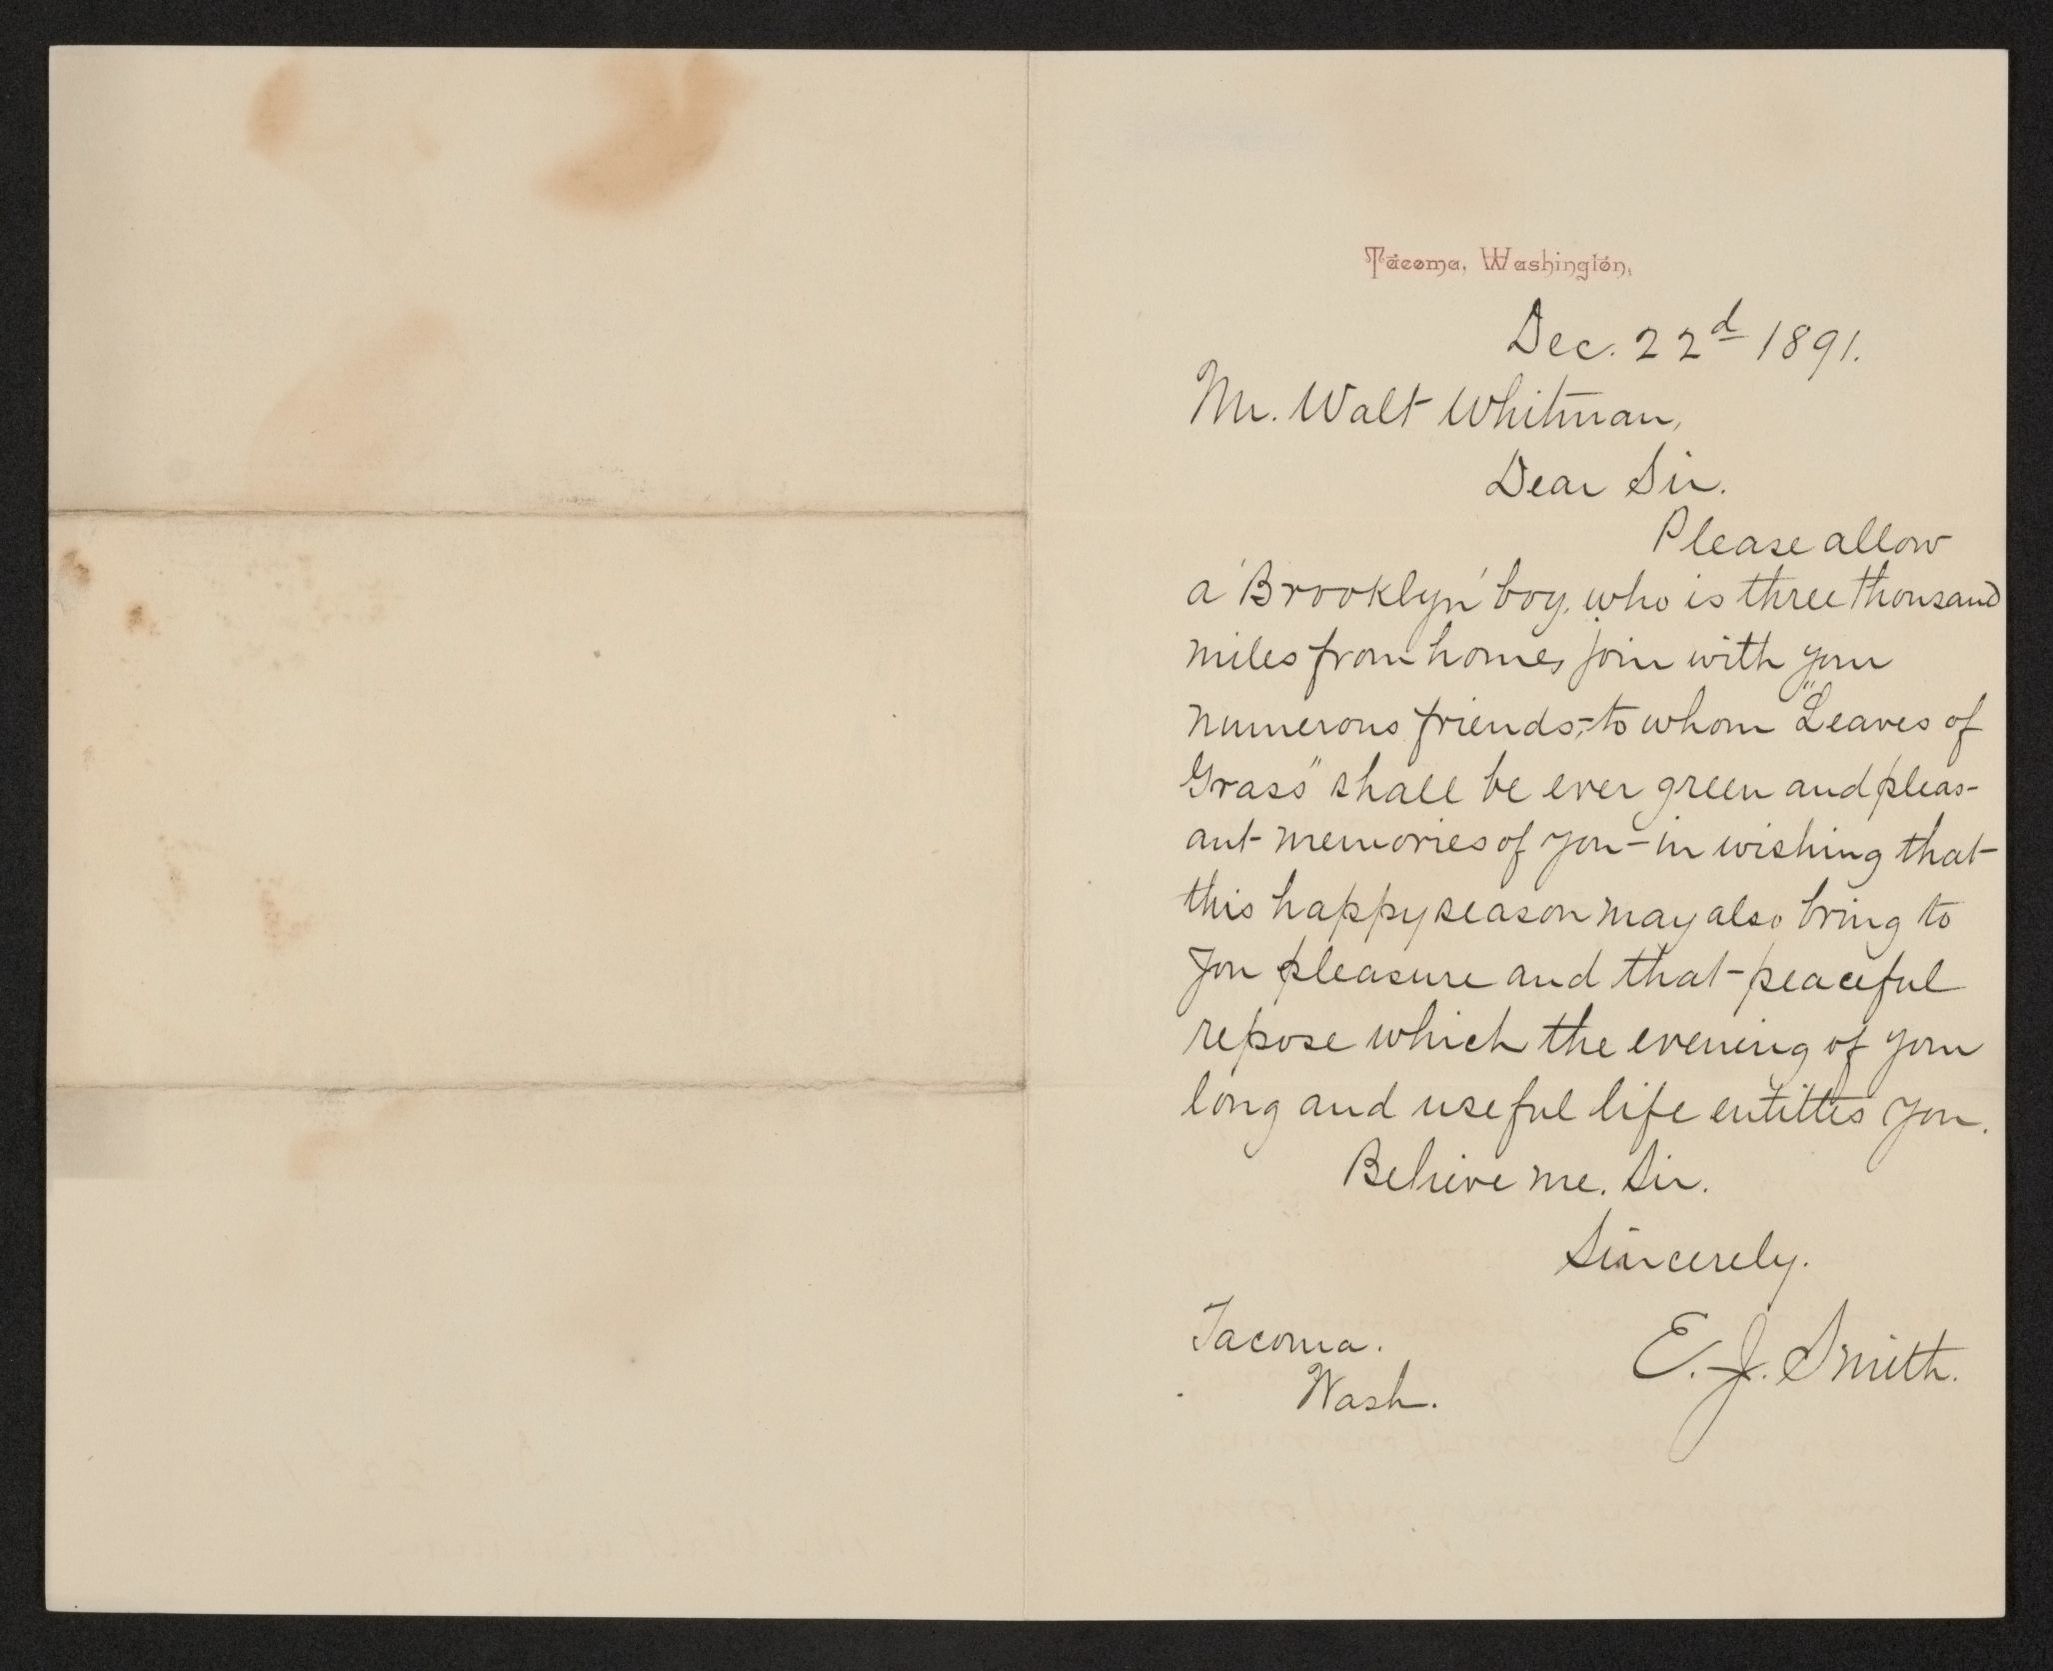 Tacoma, Washington,
Dec. 22d 1891.
Mr. Walt Whitman,
Dear Sir.
Please allow
a 'Brooklyn' boy, who is three thousand
miles from home, join with your
numerous friends,-to whom "Leaves of
Grass" shall be ever green and pleas-
ant memories of you-in wishing that
this happy season may also bring to
you pleasure and that peaceful
repose which the evening of your
long and useful life entittes you.
Believe me. Sir.
Sincerely.
E. J. Smith.
Tacoma.
Wash.